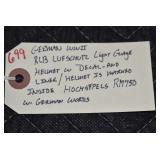 699
GERMAN WWII
RLB LUFSCHUTZ LIGHT GAUGE
HELMET W DECAL AND
LINER/HELMET IS MARKED
INSIDE
W GERMAN WORDS